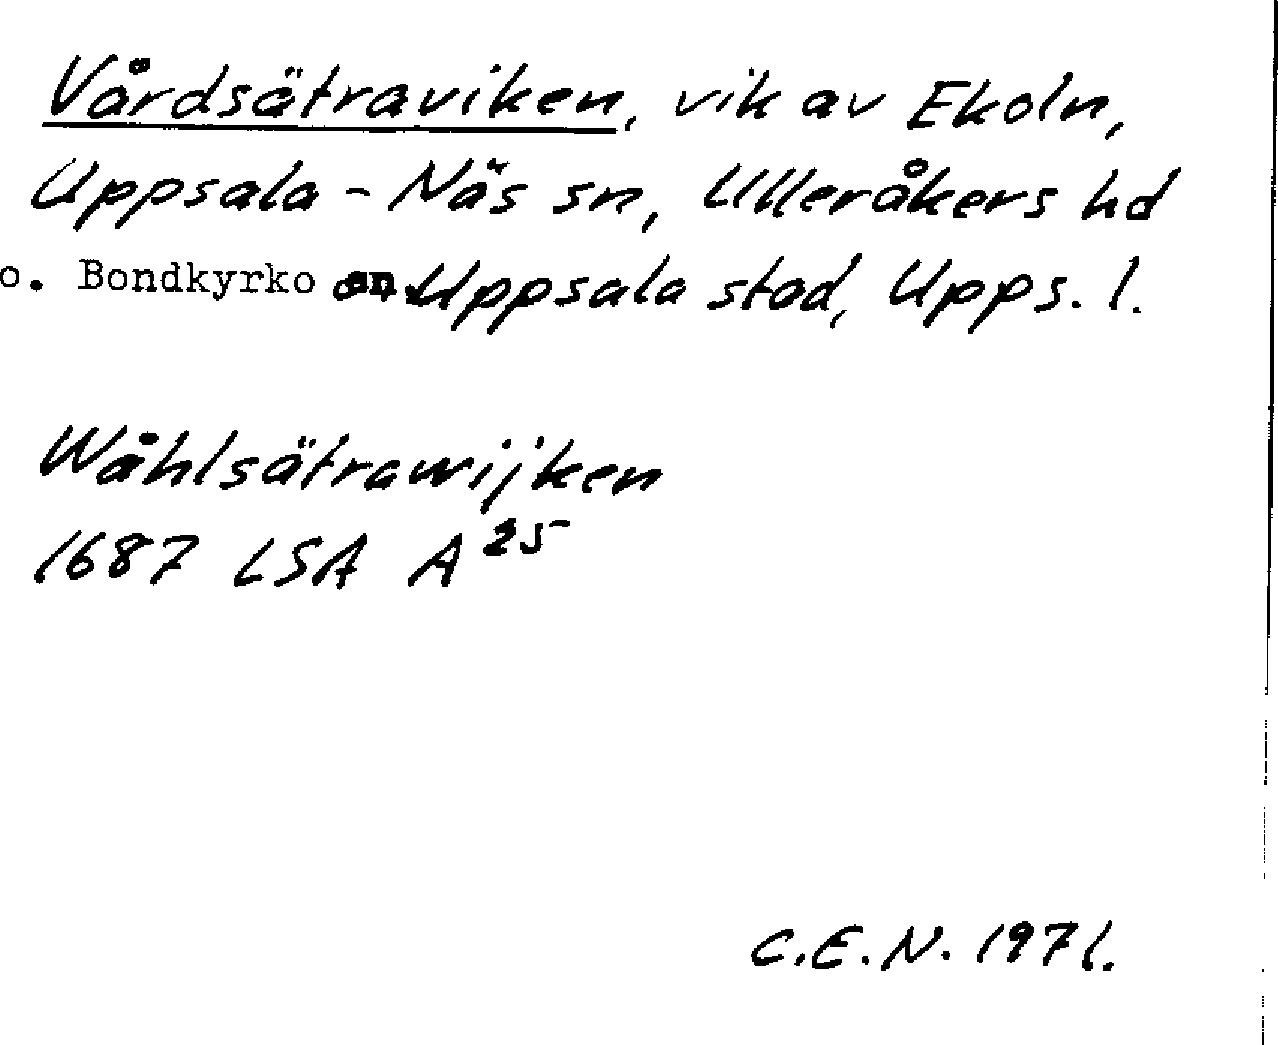 Vårdsätraviken, vik av Ekoln,
Uppsala-Näs sn, Ulleråkers hd
o. Bondkyrko sn, Uppsala stad, Upps. l.
Wåhlsätrawijken
1687 LSA A 25
C.E.N. 1971.